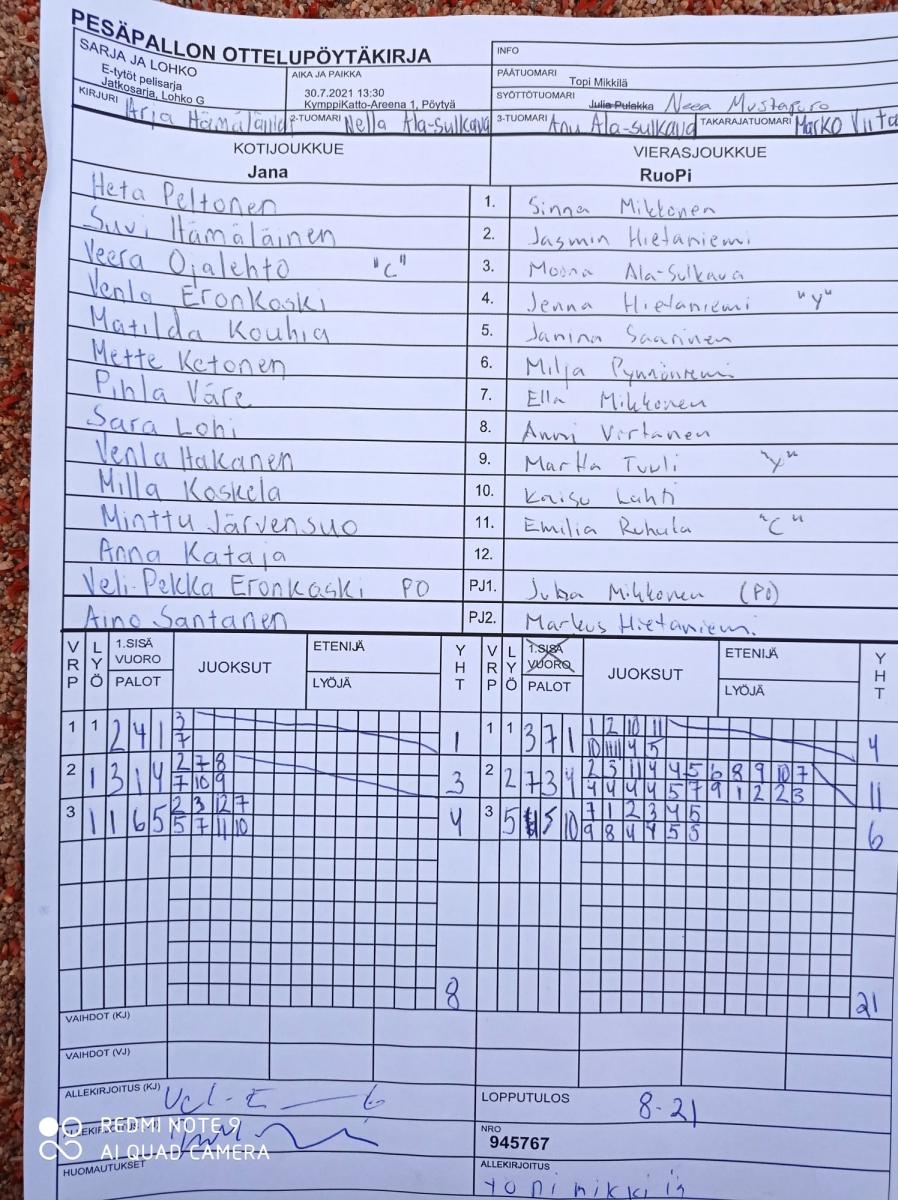 PESÄPALLON OTTELUPÖYTÄKIRJA
INFO
SARJA JA LOHKO
E-tytöt pelisarja
Jatkosarja, Lohko G
AIKA JA PAIKKA
30.7.2021 13:30
KymppiKatto-Areena 1, Pöytyä
PÄÄTUOMARI Topi Mikkilä
SYÖTTÖTUOMARI Julia Pulakka Neea Mustapuro
KIRJURI Arja 2-TUOMARI Nella Ala-sulkava 3-TUOMARI Anu Ala-sulkava TAKARAJATUOMARI Marko Viita
KOTIJOUKKUE VIERASJOUKKUE
Jana RuoPi
Heta Peltonen 1. Sinna Mikkonen
Suvi Hämäläinen 2. Jasmin Hietaniemi
Veera Ojalehto "C" 3. Moona Ala-Sulkava
Venla Eronkoski 4. Jenna Hietaniemi "Y"
Matilda Kouhia 5. Janina Saarinen
Mette Ketonen 6. Milja Pynnönniemi
Pihla Väre 7. Ella Mikkonen
Sara Lohi 8. Anni Virtanen
Venla Hakanen 9. Martta Tuuli "Y"
Milla Koskela 10. Kaisu Lahti
Minttu Järvensuo 11. Emilia Ruhula "C"
Anna Kataja 12.
Veli-Pekka Eronkoski PO PJ1. Juha Mikkonen (PO)
Aino Santanen PJ2. Markus Hietaniemi
VRP LYÖ 1.SISÄ VUORO PALOT JUOKSUT ETENIJÄ LYÖJÄ YHT VRP LYÖ 1.SISÄ VUORO PALOT JUOKSUT ETENIJÄ LYÖJÄ YHT
1 1 2 4 1 3 1 1 1 3 7 1 1 2 10 11 4
7 10 11 4 5
2 1 3 1 4 2 7 8 3 2 2 7 3 4 2 3 11 4 4 5 6 8 9 10 7 11
7 10 9 4 4 4 4 5 7 9 1 2 2 3
3 1 1 6 5 2 3 12 7 4 3 5 5 10 7 1 2 3 4 5 6
5 7 11 10 9 8 4 4 5 5
8 21
VAIHDOT (KJ)
VAIHDOT (VJ)
ALLEKIRJOITUS (KJ)
LOPPUTULOS 8-21
NRO
945767
HUOMAUTUKSET
ALLEKIRJOITUS
REDMI NOTE 9
AI QUAD CAMERA